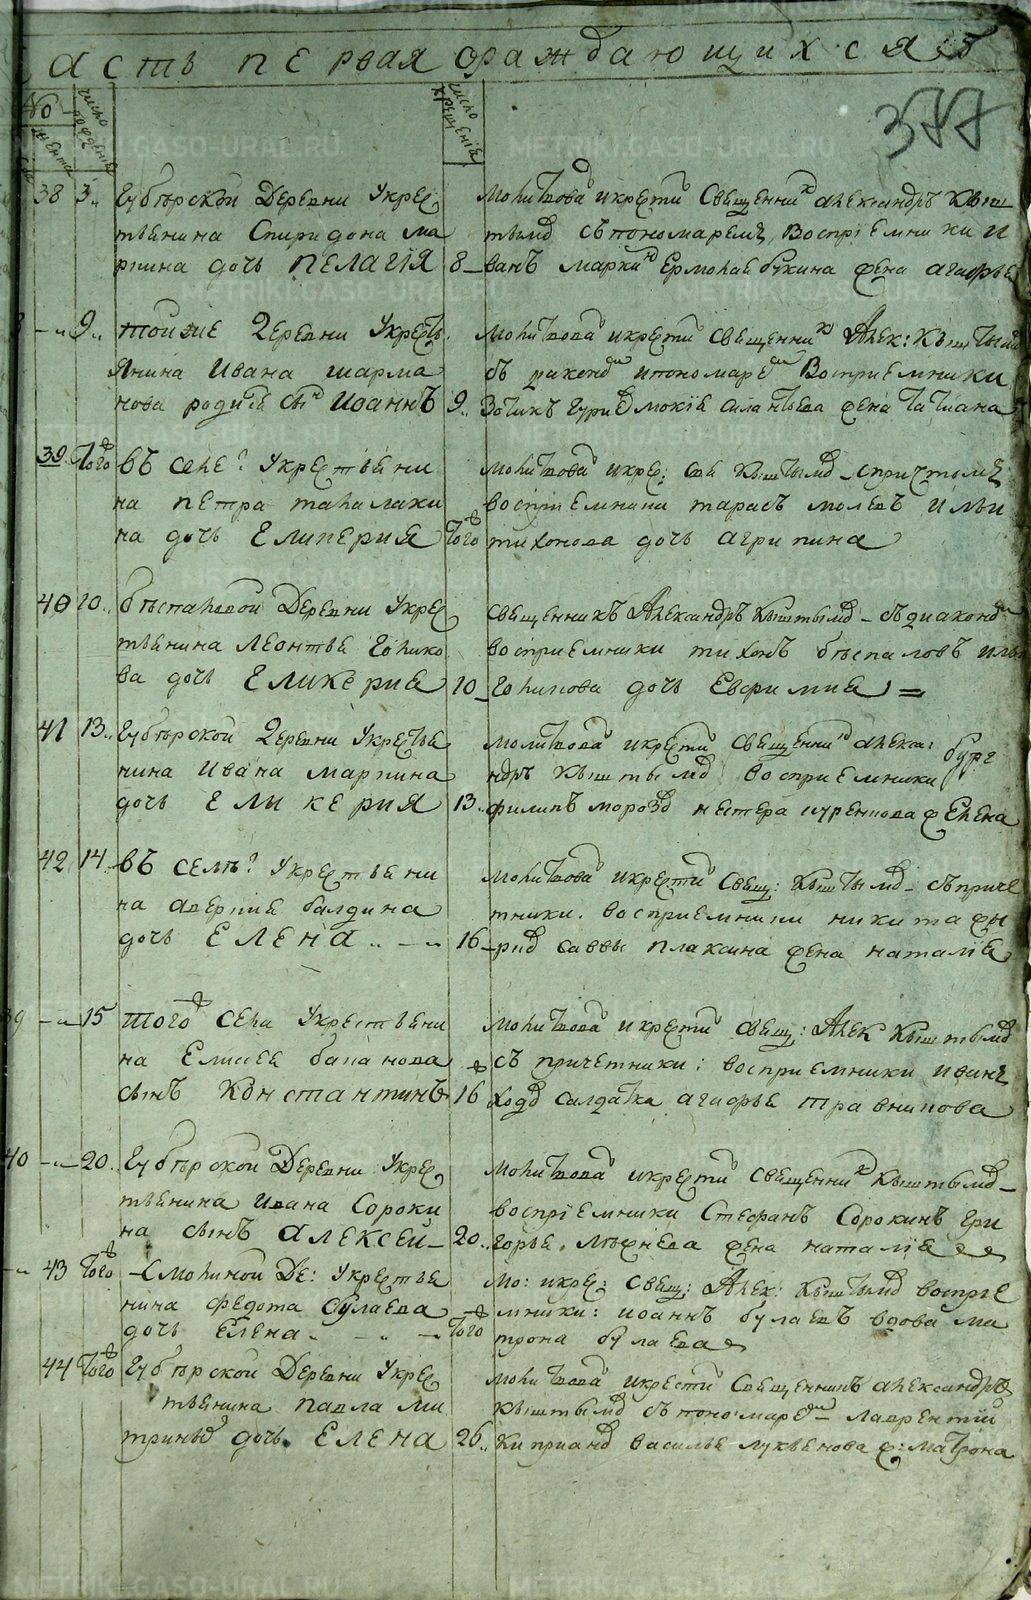 асть первая ораждающихся
377
№
число рождения
число крещения
METRIKI.GASO-URAL.RU
38 3 Губѣрской деревни укрес
тьянина Спиридона Ма
ршина дочь Пелагія 8
молитвовал и крестил священник Александръ Кыш
тымов съ пономаремъ, восприемники и
ванъ Маркин Ермолая Букина жена Агафья
9 тойже деревни укресть
янина Ивана Шарма
нова родился сын Иоаннъ 9
молитвовал и крестил священник Алек: Кыштымов
съ диаконом и пономарем восприемники
Зотикъ Гурие Мокия Силантьева жена Татиана
39 того въ селе укрестьяни
на Петра Талалаки
на дочь Гликерия того
молитвовал и крес: свя Кыштымов спричтомъ
восприемники Тарасъ Молевъ Ильи
Тихонова дочь Агрипина
40 10 беспаловой деревни укрес
тьянина Леонтья Голико
ва дочь Гликерия 10
священникъ Александръ Кыштымов съ диаконом
восприемники Тихонъ Бѣспаловъ Ильи
Голикова дочь Евфимия
41 13 Губѣрской деревни укрестья
нина Ивана Маршина
дочь Гликерия 13
молитвовал и крестил священник Алекса:
ндръ Кыштымов восприемники
Филипъ Морозов Нестера Куренкова ж Елена
42 14 въ селѣ укрестьяни
на Аверкия Балдина
дочь Елена 16
молитвовал и крестил свящ: Кыштымов съ приче
тники. восприемники Никита
Саввы Плаксина жена Наталия
39 15 того села укрестьяни
на Елисея Баланова
сынъ Константинъ 16
молитвовал и крестил свящ: Алек Кыштымов
съ причетники: восприемники Иванъ
Ходов салдатка Агафья Травникова
40 20 Губѣрской деревни укрес
тьянина Ивана Сороки
на сынъ Алексей 20
молитвовал и крестил священник Кыштымов
восприемники Стефанъ Сорокинъ Гри
горья жена Наталия
43 того Смолиной де: укрестья
нина Федота Булаева
дочь Елена того
мо: и крес: свящ: Алек: Кыштымов восприе
мники: Иоаннъ Булаевъ вдова Ма
трона Булаева
44 того Губѣрской деревни укрес
тьянина Павла Ми
триных дочь Елена 26
молитвовал и крестил священникъ Александръ
Кыштымов съ пономарем Лаврентий
Киприанов Василья Лукьянова ж: Матрона
METRIKI.GASO-URAL.RU